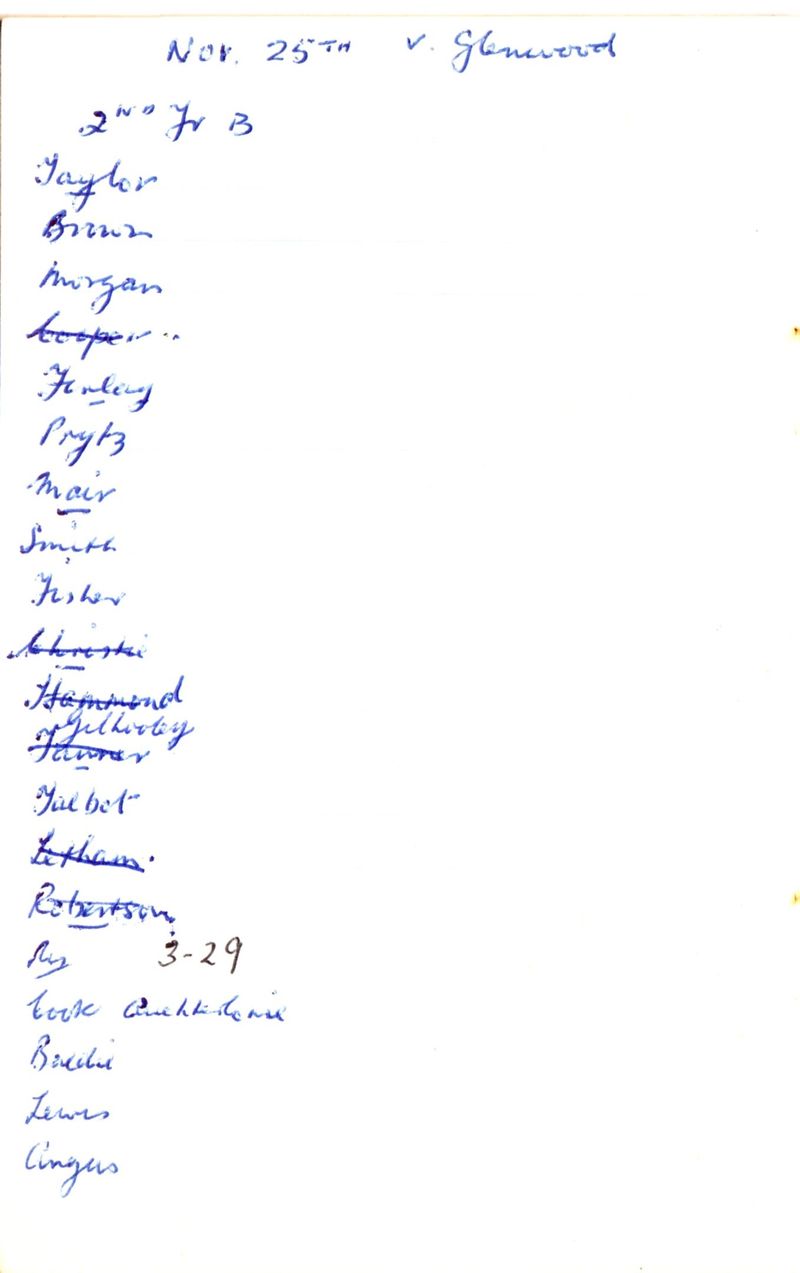 Nov. 25TH v. Glenwood
2ND Yr B
Taylor
Brown
Morgan
Cooper
Finlay
Prytz
Mair
Smith
Fisher
Christie
Hammond
Gilhooley
Tanner
Talbot
Letham.
Robertson
Res 3-29
Cook Auchterlonie
Baillie
Lewis
Angus